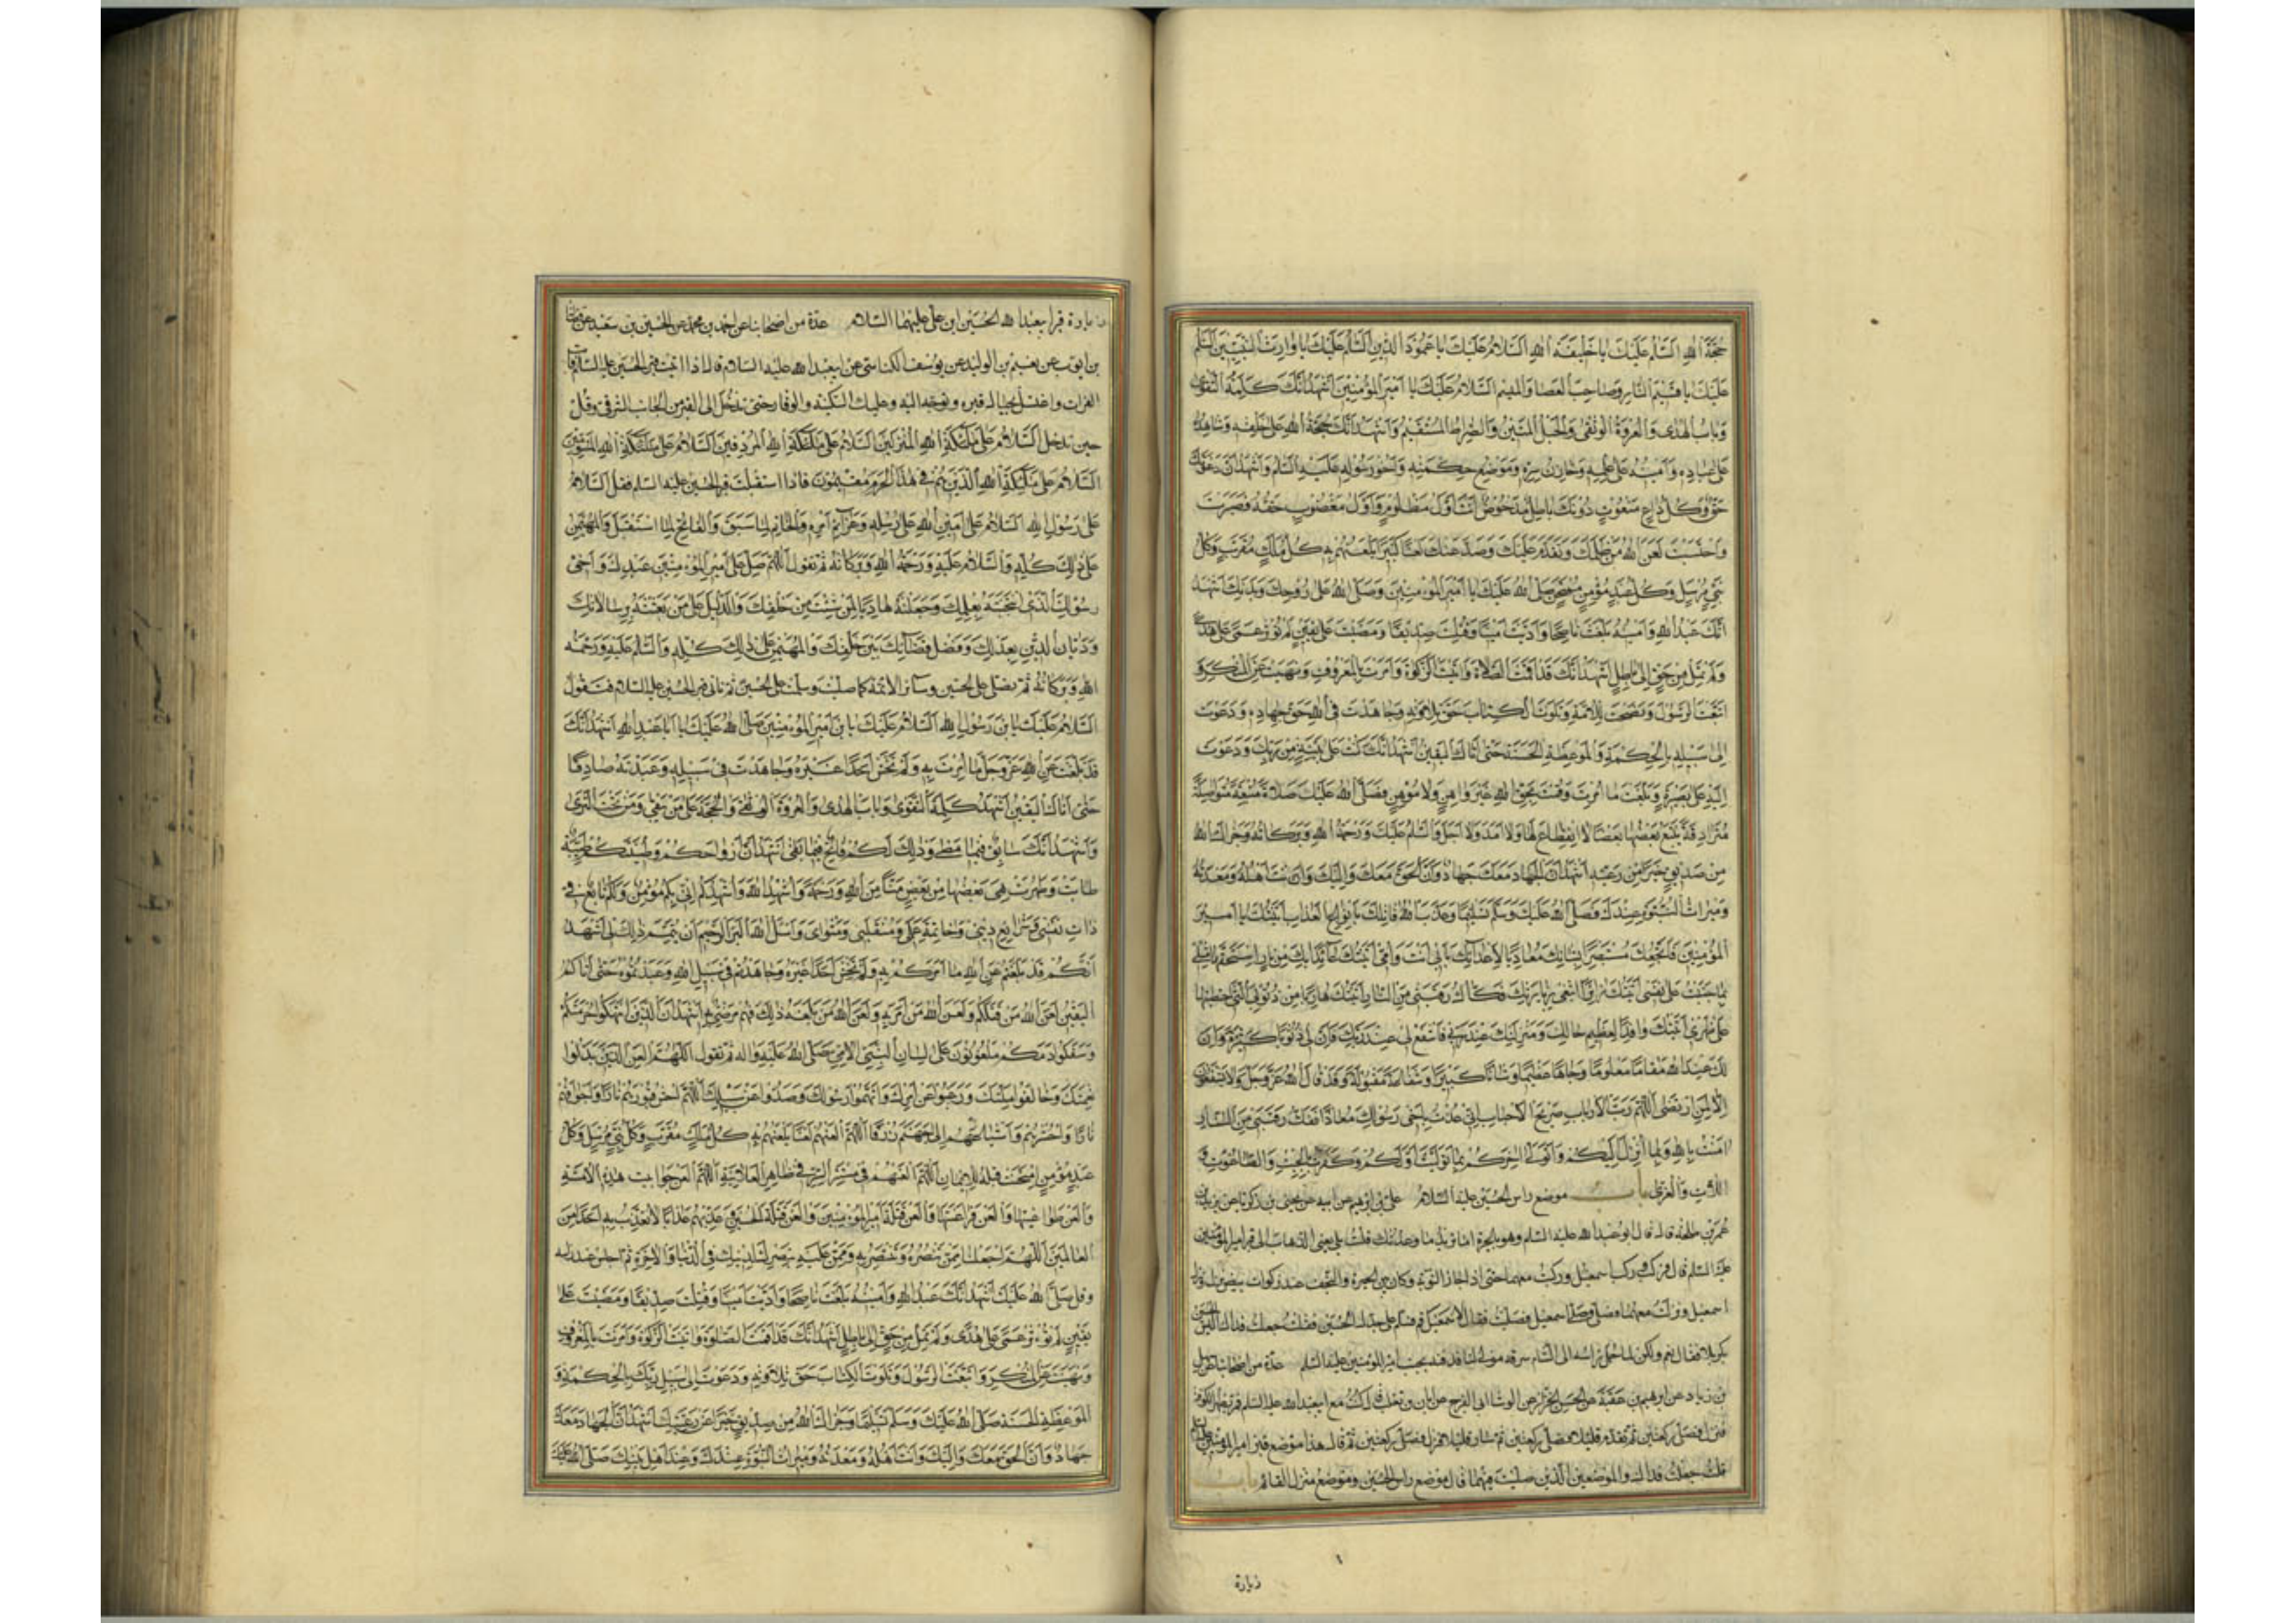 حجة الله السلام عليك يا خليفة الله السلام عليك يا عمود الدين السلام عليك يا وارث النبيين السلم
عليك يا قسيم النار وصاحب العصا والميسم السلام عليك يا امير المؤمنين اشهد انك كلمة التقوى
وباب الهدى والعروة الوثقى والحبل المتين والصراط المستقيم واشهد انك حجة الله على خلقه وشاهده
على عباده وامينه على علمه وخازن سره وموضع حكمته واخو رسوله عليه السلم واشهد ان دعوتك
حق وكل داع منعوت دونك باطل مدحوض انت اول مظلوم واول مغصوب حقه فصبرت
واحتسبت لعن الله من ظلمك وتقدم عليك وصد عنك لعنا كثيرا يلعنهم به كل ملك مقرب وكل
نبي مرسل وكل عبد مؤمن ممتحن صلى الله عليك يا امير المؤمنين وصلى الله على روحك وبدنك اشهد
انك عبد الله وامينه بلغت ناصحا واديت امينا وقتلت صديقا ومضيت على يقين لم تؤثر عمى على هدى
ولم تمل من حق الى باطل اشهد انك قد اقمت الصلاة واتيت الزكوة وامرت بالمعروف ونهيت عن المنكر و
اتبعت الرسول ونصحت للامة وتلوت الكتاب حق تلاوته وجاهدت في الله حق جهاده ودعوت
الى سبيله بالحكمة والموعظة الحسنة حتى اتاك اليقين اشهد انك كنت على بينة من ربك ودعوت
اليه على بصيرة وبلغت ما امرت وقمت بحق الله غير واهن ولا موهن فصلى الله عليك صلاة متبعة متواصلة
مترادفة يتبع بعضها بعضا لا انقطاع لها ولا امد ولا اجل والسلم عليك ورحمة الله وبركاته وجزاك الله
من صديق خيرا من رعيته اشهد ان الجهاد معك جهاد وان الحق معك واليك وانت اهله ومعدنه
وميراث النبوة عندك فصلى الله عليك وسلم تسليما وعذب الله قاتلك بانواع العذاب اتيتك يا امير
المؤمنين عارفا بحقك مستبصرا بشانك معاديا لاعدائك بابي انت وامي اتيتك عائذا بك من نار استحقها مثلي
بما جنيت على نفسي اتيتك زائرا ابتغي بزيارتك فكاك رقبتي من النار اتيتك هاربا من ذنوبي التي احتطبتها
على ظهري اتيتك وافدا لعظيم حالك ومنزلتك عند ربي فاشفع لي عند ربك فان لي ذنوبا كثيرة وان
لك عند الله مقاما معلوما وجاها عظيما وشانا كبيرا وشفاعة مقبولة وقد قال الله عز وجل ولا يشفعون
الا لمن ارتضى اللهم رب الارباب صريخ الاحباب اني عذت باخي رسولك معاذا ففك رقبتي من النار
امنت بالله وبما انزل اليكم واتولى اخركم بما توليت اولكم وكفرت بالجبت والطاغوت و
اللات والعزى باب موضع راس الحسين عليه السلام علي بن ابرهيم عن ابيه عن يحيى بن زكريا عن يزيد بن
عمر بن طلحة قال قال ابو عبد الله عليه السلم وهو بالحيرة اما تريد ما وعدتك قلت بلى يعني الذهاب الى قبر امير المؤمنين
عليه السلم قال فركب وركب اسمعيل وركبت معهما حتى اذا جاز الثوية وكان بين الحيرة والنجف عند ذكوات بيض نزل ونزل
اسمعيل ونزلت معهما فصلى وصلى اسمعيل وصليت فقال لاسمعيل قم فسلم على جدك الحسين فقلت جعلت فداك اليس الحسين
بكربلا فقال نعم ولكن لما حمل راسه الى الشام سرقه مولى لنا فدفنه بجنب امير المؤمنين عليه السلم عدة من اصحابنا عن سهل
بن زياد عن ابرهيم بن عقبة عن الحسن الخزاز عن الوشا ابي الفرج عن ابان بن تغلب قال كنت مع ابي عبد الله عليه السلم فمر بظهر الكوفة
فنزل فصلى ركعتين ثم تقدم قليلا فصلى ركعتين ثم سار قليلا فنزل فصلى ركعتين ثم قال هذا موضع قبر امير المؤمنين عليه السلم
قلت جعلت فداك والموضعين الذين صليت فيهما قال موضع راس الحسين وموضع منزل القائم باب
زيارة
زيارة قبر ابي عبد الله الحسين ابن علي عليهما السلام عدة من اصحابنا عن احمد بن محمد عن الحسين بن سعيد عن فضالة
بن ايوب عن نعيم بن الوليد عن يوسف الكناسي عن ابي عبد الله عليه السلام قال اذا اتيت قبر الحسين عليه السلام فات
الفرات واغتسل بحيال قبره وتوجه اليه وعليك السكينة والوقار حتى تدخل الى القبر من الجانب الشرقي وقل
حين تدخله السلام على ملئكة الله المنزلين السلام على ملئكة الله المردفين السلام على ملئكة الله المسومين
السلام على ملئكة الله الذين هم في هذا الحرم مقيمون فاذا استقبلت قبر الحسين عليه السلم فقل السلام
على رسول الله السلام على امين الله على رسله وعزائم امره والخاتم لما سبق والفاتح لما استقبل والمهيمن
على ذلك كله والسلام عليه ورحمة الله وبركاته ثم تقول اللهم صل على امير المؤمنين عبدك واخي
رسولك الذي انتجبته بعلمك وجعلته هاديا لمن شئت من خلقك والدليل على من بعثته برسالاتك
وديان الدين بعدلك وفصل قضائك بين خلقك والمهيمن على ذلك كله والسلم عليه ورحمة
الله وبركاته ثم تصلي على الحسين وسائر الائمة كما صليت وسلمت على الحسين ثم تاتي قبر الحسين عليه السلام فتقول
السلام عليك يا بن رسول الله السلام عليك يا بن امير المؤمنين صلى الله عليك يا ابا عبد الله اشهد انك
قد بلغت عن الله عز وجل ما امرت به ولم تخش احدا غيره وجاهدت في سبيله وعبدته صادقا
حتى اتاك اليقين اشهد كلمة التقوى وباب الهدى والعروة الوثقى والحجة على من يبقى ومن تحت الثرى
واشهد انك سابق فيما مضى وذلك لكم فاتح فيما بقي اشهد ان ارواحكم وطينتكم طيبة
طابت وطهرت هي بعضها من بعض منا من الله ورحمة واشهد الله واشهدكم اني بكم مؤمن ولكم تابع في
ذات نفسي وشرائع ديني وخاتمة عملي ومنقلبي ومثواي واسئل الله البر الرحيم ان يتمم ذلك لي اشهد
انكم قد بلغتم عن الله ما امركم به ولم تخش احدا غيره وجاهدتم في سبيل الله وعبدتموه حتى اتاكم
اليقين لعن الله من قتلكم ولعن الله من امر به ولعن الله من بلغه ذلك فهم مرضي به اشهد ان الذين انتهكوا حرمتكم
وسفكوا دمكم ملعونون على لسان النبي الامي صلى الله عليه واله ثم تقول اللهم العن الذين بدلوا
نعمتك وخالفوا ملتك ورغبوا عن امرك واتهموا رسولك وصدوا عن سبيلك اللهم احش قبورهم نارا واجوافهم
نارا واحشرهم واشياعهم الى جهنم زرقا اللهم العنهم لعنا يلعنهم به كل ملك مقرب وكل نبي مرسل وكل
عبد مؤمن امتحنت قلبه للايمان اللهم العنهم في مستسر السر في ظاهر العلانية اللهم العن جوابيت هذه الامة
والعن طواغيتها والعن فراعنتها والعن قتلة امير المؤمنين والعن قتلة الحسين وعذبهم عذابا لا تعذب به احدا من
العالمين اللهم اجعلنا ممن تنصره وتنتصر به وتمن عليه بنصرك لدينك في الدنيا والاخرة ثم اجلس عند راسه
وقل صلى الله عليك اشهد انك عبد الله وامينه بلغت ناصحا واديت امينا وقتلت صديقا ومضيت على
يقين لم تؤثر عمى على هدى ولم تمل من حق الى باطل اشهد انك قد اقمت الصلوة واتيت الزكوة وامرت بالمعروف
ونهيت عن المنكر واتبعت الرسول وتلوت الكتاب حق تلاوته ودعوت الى سبيل ربك بالحكمة و
الموعظة الحسنة صلى الله عليك وسلم تسليما وجزاك الله من صديق خيرا عن رعيتك اشهد ان الجهاد معك
جهاد وان الحق معك واليك وانت اهله ومعدنه وميراث النبوة عندك وعند اهل بيتك صلى الله عليك